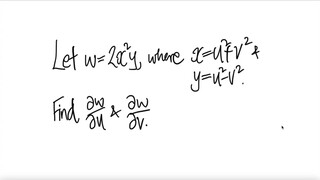 Let w=2x²y, where x=u²+v² &
y=u²-v².
Find ∂w/∂u & ∂w/∂v.